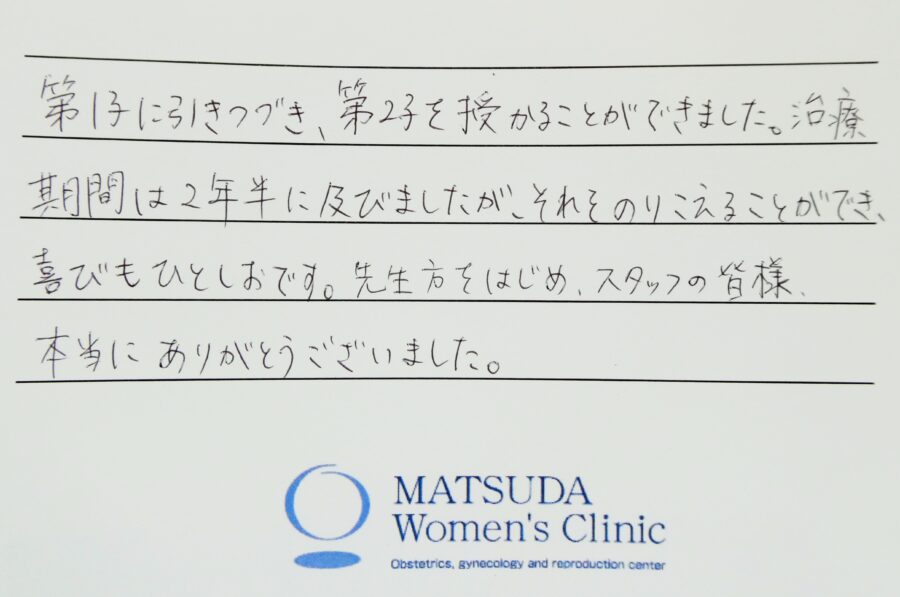 第1子に引きつづき、第2子を授かることができました。治療
期間は2年半に及びましたが、それをのりこえることができ、
喜びもひとしおです。先生方をはじめ、スタッフの皆様、
本当にありがとうございました。
MATSUDA
Women's Clinic
Obstetrics, gynecology and reproduction center